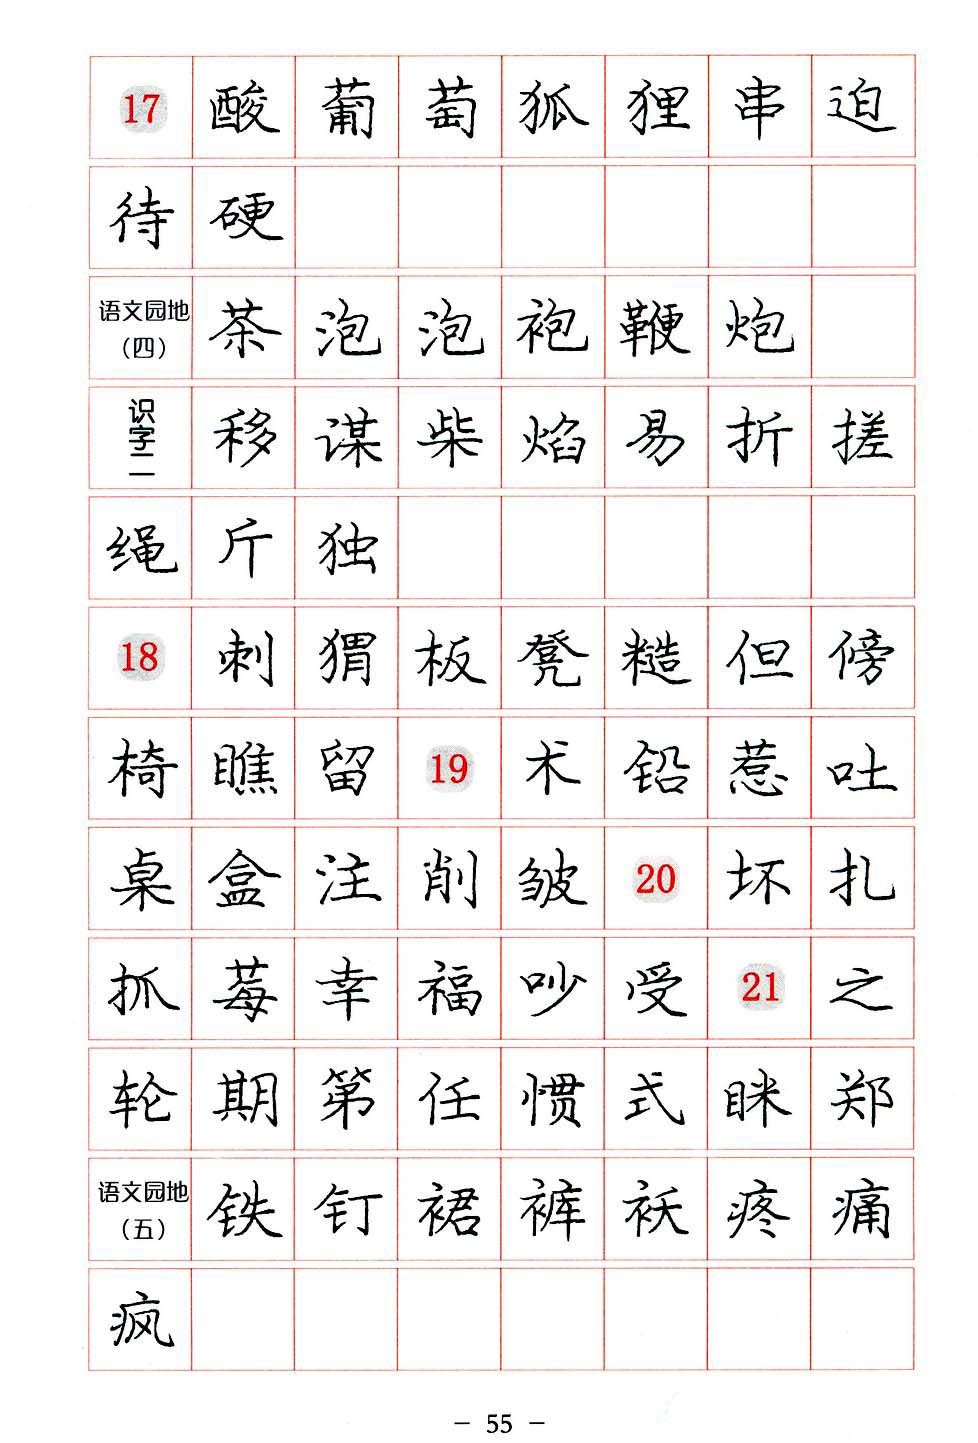 17 酸 葡 萄 狐 狸 串 迫
待 硬
语文园地(四) 茶 泡 泡 袍 鞭 炮
识字二 移 谋 柴 焰 易 折 搓
绳 斤 独
18 刺 猬 板 凳 糙 但 傍
椅 瞧 留 19 术 铅 惹 吐
桌 盒 注 削 皱 20 坏 扎
抓 莓 幸 福 吵 受 21 之
轮 期 第 任 惯 式 眯 郑
语文园地(五) 铁 钉 裙 裤 袄 疼 痛
疯
- 55 -